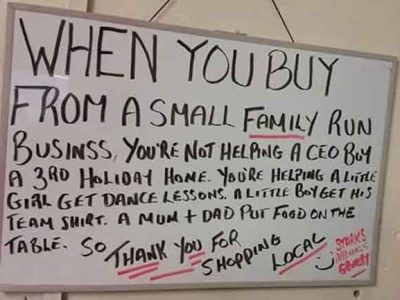 WHEN YOU BUY
FROM A SMALL FAMILY RUN
BUSINSS, YOU'RE NOT HELPING A CEO BUY
A 3RD HOLIDAY HOME. YOU'RE HELPING A LITTLE
GIRL GET DANCE LESSONS. A LITTLE BOY GET HIS
TEAM SHIRT. A MUM + DAD PUT FOOD ON THE
TABLE. SO THANK YOU FOR
SHOPPING LOCAL
STARKS